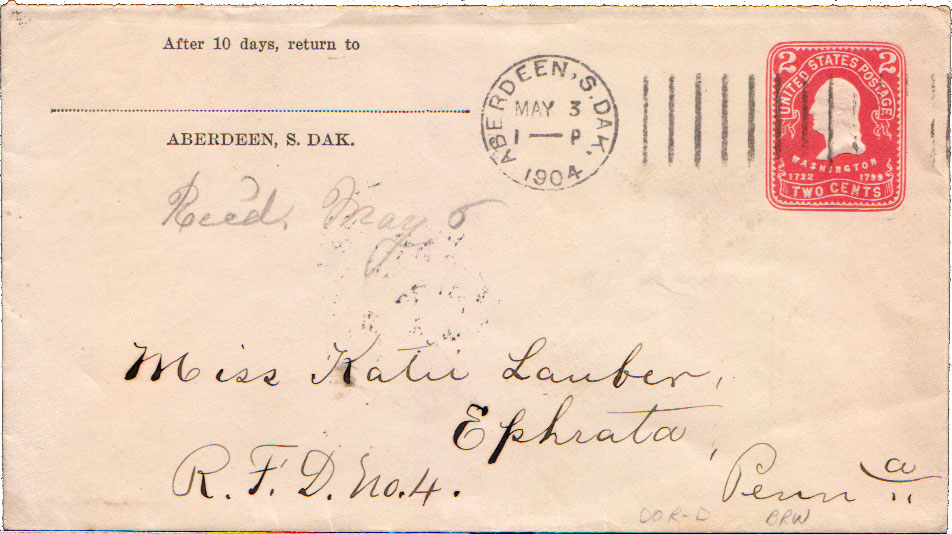 After 10 days, return to
ABERDEEN, S. DAK.
ABERDEEN, S. DAK.
MAY 3
1 — P
1904
2 2
UNITED STATES POSTAGE
WASHINGTON
1732 1799
TWO CENTS
Recd. May 6
Miss Katie Lauber,
Ephrata,
R. F. D. No. 4. Penn a
DOR-D BRW